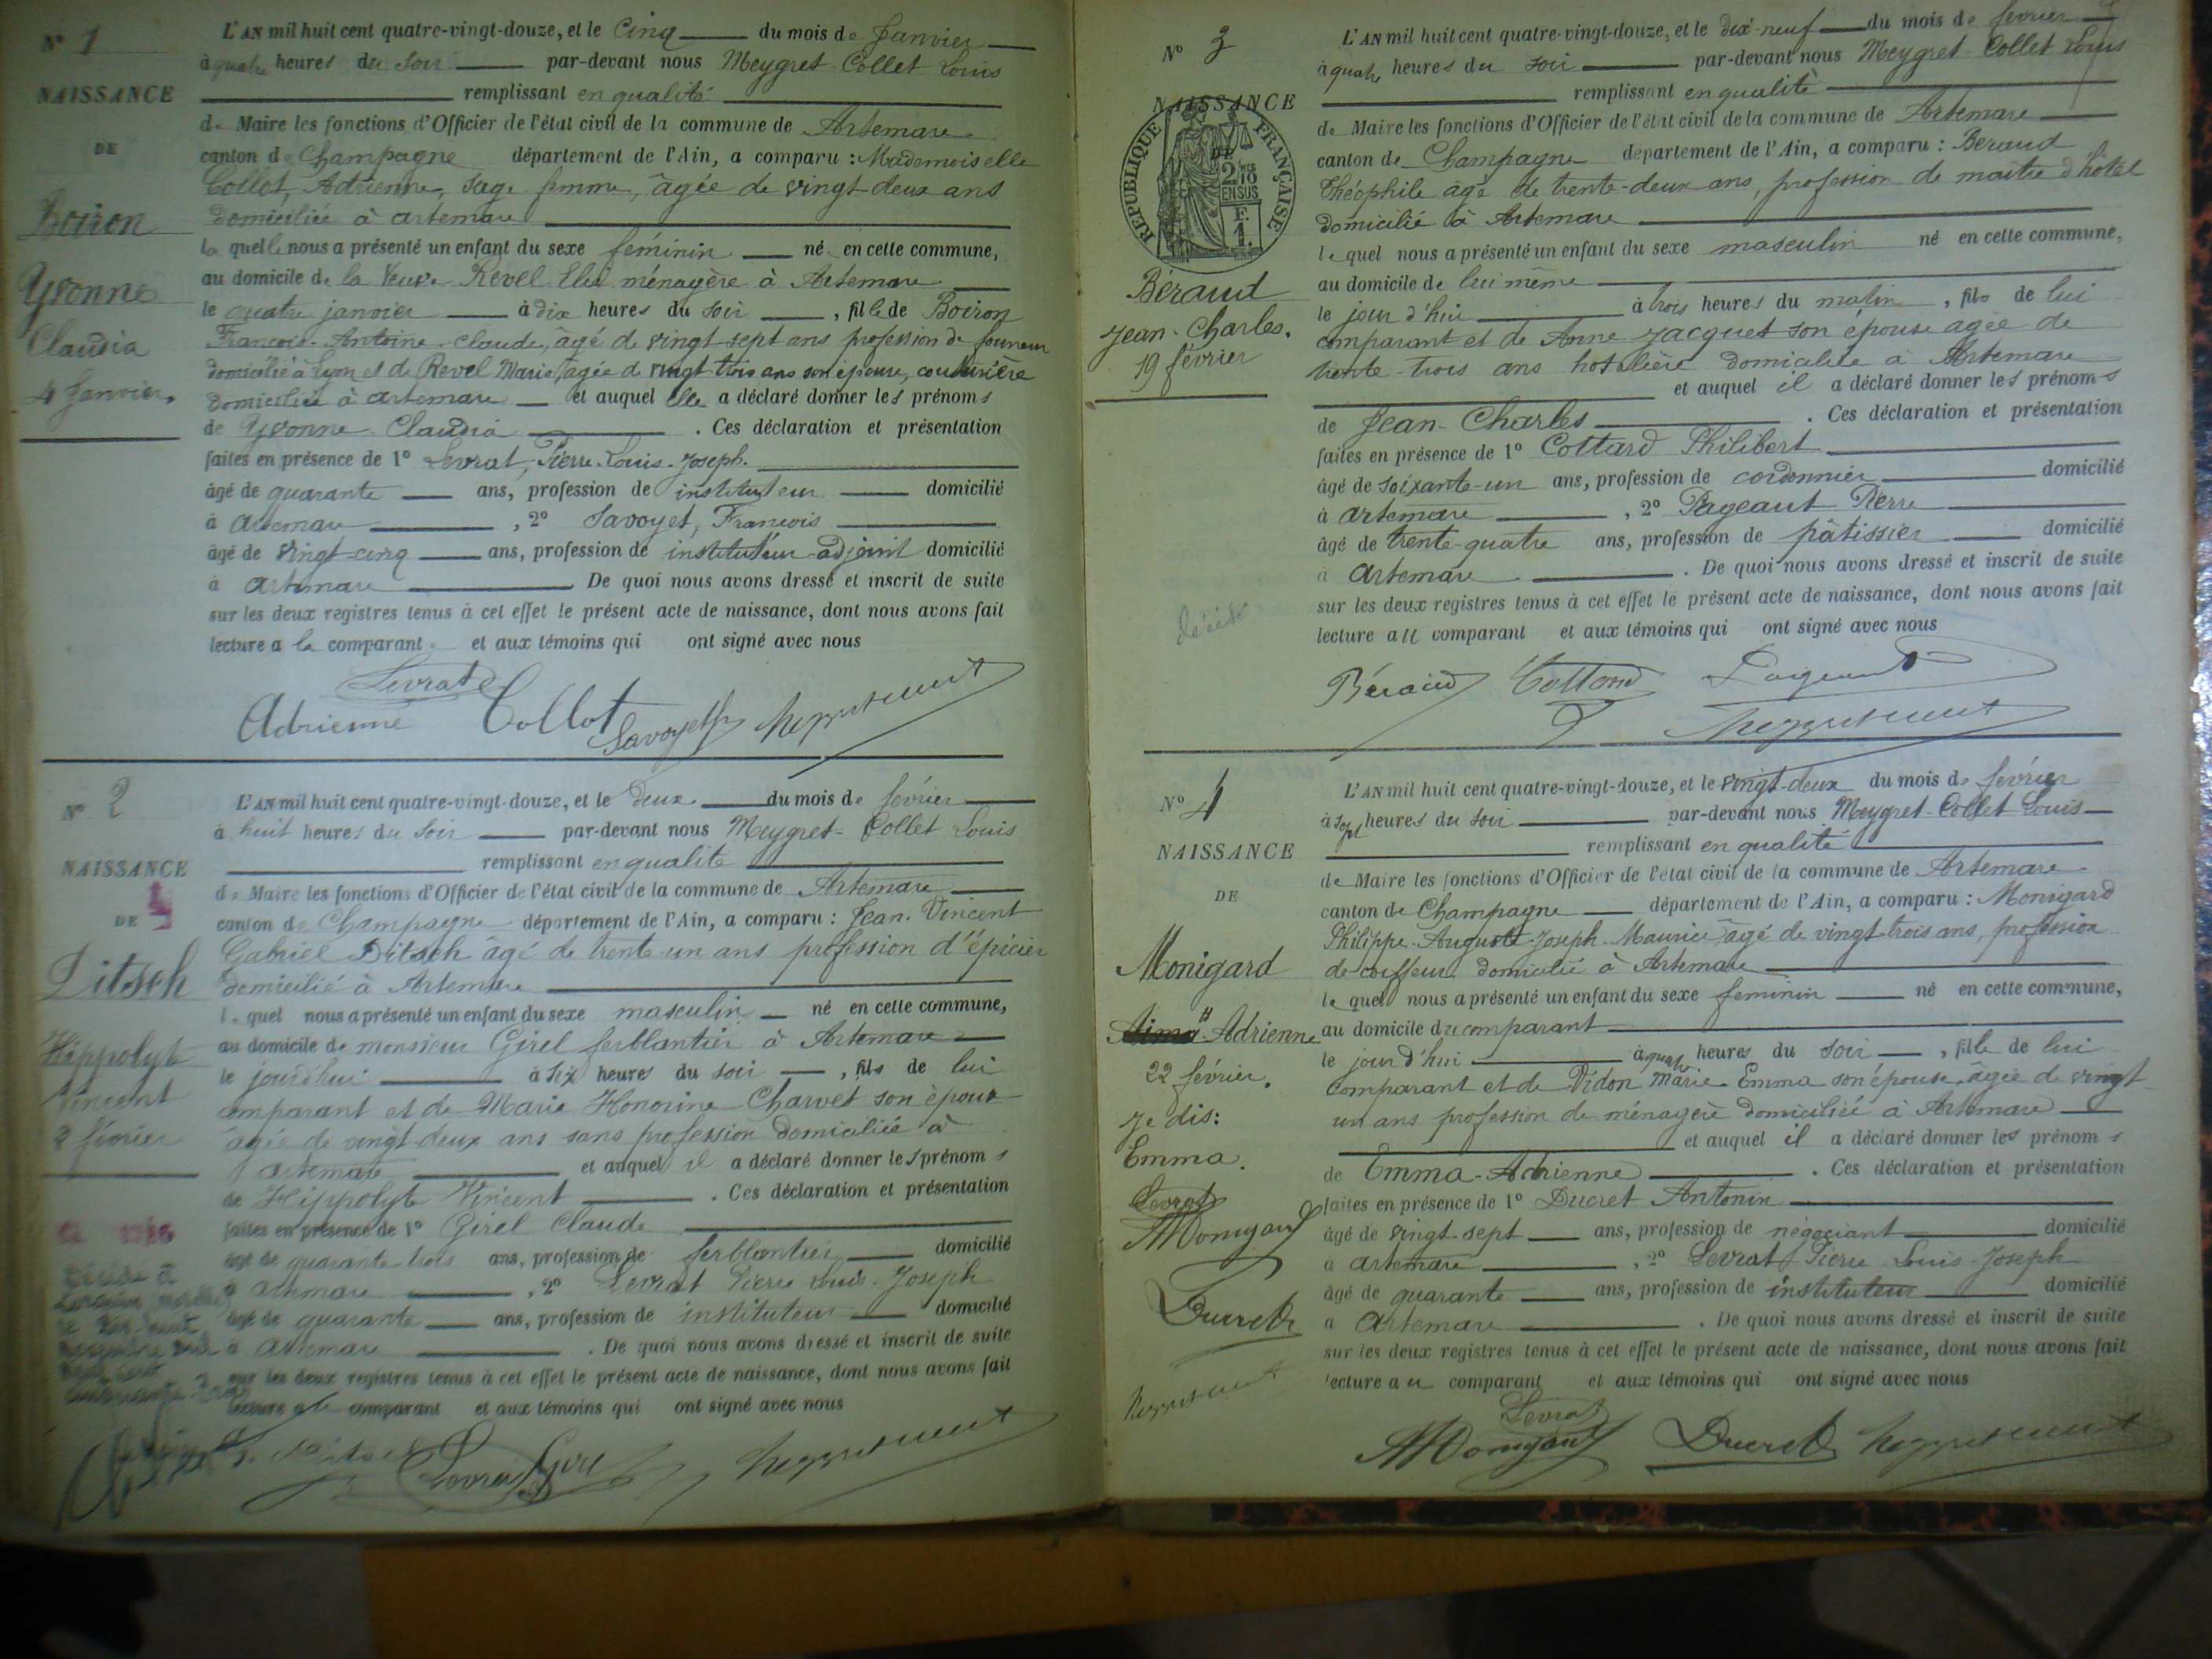 N° 1
NAISSANCE
DE
Boiron
Yvonne
Claudia
4 Janvier.
L'AN mil huit cent quatre-vingt-douze, et le Cinq du mois de Janvier
à quatre heures du soir par-devant nous Meygret-Collet Louis
remplissant en qualité
de Maire les fonctions d'Officier de l'état civil de la commune de Artemare
canton de Champagne département de l'Ain, a comparu : Mademoiselle
Collot, Adrienne, sage femme, âgée de vingt-deux ans
domiciliée à artemare
la quelle nous a présenté un enfant du sexe féminin né en cette commune,
au domicile de la Veuve Revel ménagère à Artemare
le quatre janvier à dix heures du soir, fille de Boiron
François-Antoine-Claude, âgé de vingt sept ans profession de
domicilié à Lyon et de Revel Marie, âgée de vingt-trois ans son épouse, couturière
domiciliée à artemare et auquel elle a déclaré donner les prénoms
de Yvonne Claudia. Ces déclaration et présentation
faites en présence de 1° Levrat, Pierre-Louis-Joseph.
âgé de quarante ans, profession de instituteur domicilié
à artemare, 2° Savoyet, François
âgé de vingt-cinq ans, profession de instituteur-adjoint domicilié
à artemare De quoi nous avons dressé et inscrit de suite
sur les deux registres tenus à cet effet le présent acte de naissance, dont nous avons fait
lecture a la comparant et aux témoins qui ont signé avec nous
Levrat
Adrienne Collot Savoyet
N° 2
NAISSANCE
DE
Ditsch
Hippolyte
Vincent
2 février
L'AN mil huit cent quatre-vingt-douze, et le deux du mois de février
à huit heures du soir par-devant nous Meygret-Collet Louis
remplissant en qualité
de Maire les fonctions d'Officier de l'état civil de la commune de Artemare
canton de Champagne département de l'Ain, a comparu : Jean-Vincent
Gabriel Ditsch âgé de trente-un ans profession d'épicier
domicilié à Artemare
le quel nous a présenté un enfant du sexe masculin né en cette commune,
au domicile de monsieur Girel ferblantier à Artemare
le jourd'hui à six heures du soir, fils de lui
comparant et de Marie Honorine Charvet son épouse
âgée de vingt-deux ans sans profession domiciliée à
artemare et auquel il a déclaré donner les prénoms
de Hippolyte Vincent. Ces déclaration et présentation
faites en présence de 1° Girel Claude
âgé de quarante trois ans, profession de ferblantier domicilié
à artemare, 2° Levrat Pierre Louis-Joseph
âgé de quarante ans, profession de instituteur domicilié
à artemare. De quoi nous avons dressé et inscrit de suite
sur les deux registres tenus à cet effet le présent acte de naissance, dont nous avons fait
lecture a le comparant et aux témoins qui ont signé avec nous
Levrat Girel
N° 3
NAISSANCE
DE
RÉPUBLIQUE FRANÇAISE
2/10
EN SUS
F.
1.
Béraud
Jean-Charles.
19 février
décédé
L'AN mil huit cent quatre-vingt-douze, et le dix-neuf du mois de février
à quatre heures du soir par-devant nous Meygret-Collet Louis
remplissant en qualité
de Maire les fonctions d'Officier de l'état civil de la commune de Artemare
canton de Champagne département de l'Ain, a comparu : Beraud
Théophile âgé de trente-deux ans, profession de maître d'hôtel
domicilié à Artemare
le quel nous a présenté un enfant du sexe masculin né en cette commune,
au domicile de lui même
le jour d'hui à trois heures du matin, fils de lui
comparant et de Anne Jacquet son épouse agée de
trente-trois ans hotelière domiciliée à Artemare
et auquel il a déclaré donner les prénoms
de Jean-Charles. Ces déclaration et présentation
faites en présence de 1° Cottard Philibert
âgé de soixante-un ans, profession de cordonnier domicilié
à artemare, 2° Pageaut Pierre
âgé de trente-quatre ans, profession de pâtissier domicilié
à artemare. De quoi nous avons dressé et inscrit de suite
sur les deux registres tenus à cet effet le présent acte de naissance, dont nous avons fait
lecture au comparant et aux témoins qui ont signé avec nous
Béraud Cottard
N° 4
NAISSANCE
DE
Monigard
Adrienne
22 février.
Je dis:
Emma.
Levrat
Monigard
Ducret
L'AN mil huit cent quatre-vingt-douze, et le vingt-deux du mois de février
à sept heures du soir par-devant nous Meygret-Collet Louis
remplissant en qualité
de Maire les fonctions d'Officier de l'état civil de la commune de Artemare
canton de Champagne département de l'Ain, a comparu : Monigard
Philippe-Auguste-Joseph-Maurice, âgé de vingt-trois ans, profession
de coiffeur domicilié à Artemare
le quel nous a présenté un enfant du sexe féminin né en cette commune,
au domicile du comparant
le jour d'hui à quatre heures du soir, fille de lui
comparant et de Vidon Marie Emma son épouse, agée de vingt-
un ans profession de ménagère domiciliée à Artemare
et auquel il a déclaré donner les prénoms
de Emma-Adrienne. Ces déclaration et présentation
faites en présence de 1° Ducret Antonin
âgé de vingt-sept ans, profession de négociant domicilié
à artemare, 2° Levrat Pierre Louis-Joseph
âgé de quarante ans, profession de instituteur domicilié
à Artemare. De quoi nous avons dressé et inscrit de suite
sur les deux registres tenus à cet effet le présent acte de naissance, dont nous avons fait
lecture au comparant et aux témoins qui ont signé avec nous
Levrat
Monigard Ducret